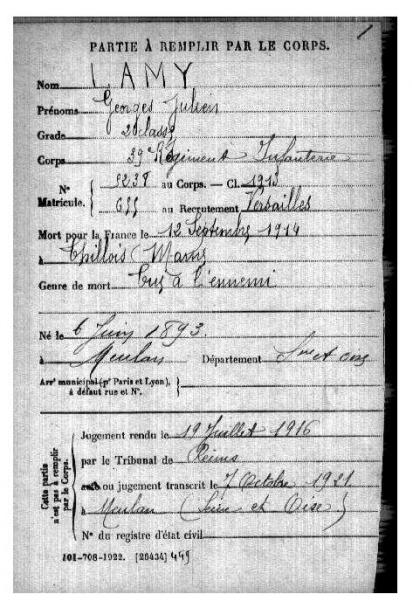 1
PARTIE À REMPLIR PAR LE CORPS.
Nom LAMY
Prénoms Georges Julien
Grade 2e classe
Corps 39e Régiment Infanterie
N° Matricule. { 5238 au Corps. — Cl. 1913
au Recrutement Versailles
Mort pour la France le 12 Septembre 1914
à Thillois (Marne)
Genre de mort Tué à l'ennemi
Né le 6 Juin 1893.
à Meulan Département Seine et Oise
Arrt municipal (pr Paris et Lyon), à défaut rue et N°. }
Cette partie n'est pas à remplir par le Corps.
Jugement rendu le 19 Juillet 1916
par le Tribunal de Reims
acte ou jugement transcrit le 7 Octobre 1921
à Meulan (Seine et Oise)
N° du registre d'état civil
101-708-1922. [26434] 449